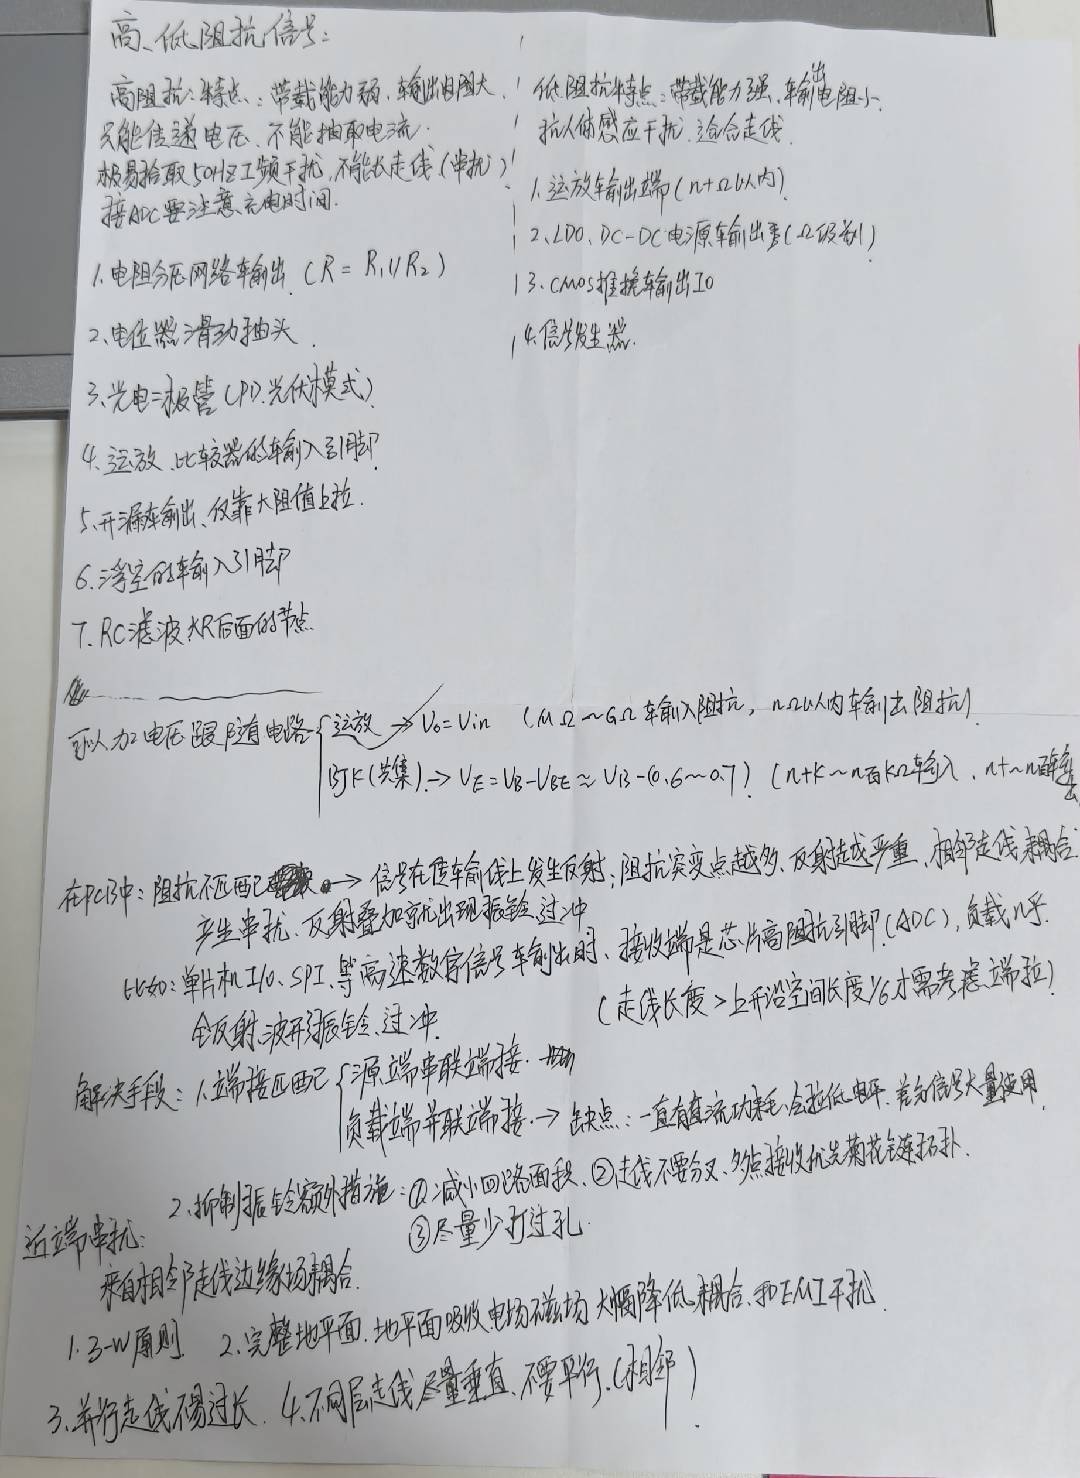 高、低阻抗信号:
高阻抗:特点:带载能力弱、输出电阻大、
只能传递电压、不能抽取电流.
极易拾取50HZ工频干扰,不能长走线(串扰)
接ADC要注意充电时间.
1.电阻分压网络输出.(R=R₁//R₂)
2.电位器滑动抽头.
3.光电二极管(PD.光伏模式)
4.运放、比较器的输入引脚.
5.开漏输出、仅靠大阻值上拉.
6.浮空的输入引脚
7.RC滤波大R后面的节点.
低阻抗特点:带载能力强、输出电阻小.
抗人体感应干扰.适合走线.
1.运放输出端(n+Ω以内)
2.LDO、DC-DC电源输出(Ω级别)
3.CMOS推挽输出IO
4.信号发生器.
可以加电压跟随电路
运放→Vo=Vin (MΩ~GΩ输入阻抗,nΩ以内输出阻抗)
BJK(共集)→VE=VB-VBE≈VB-(0.6~0.7) (n+K~n百KΩ输入.n+~n百输出
在PCB中:阻抗不匹配→信号在传输线上发生反射;阻抗突变点越多、反射越严重、相邻走线耦合
产生串扰、反射叠加就出现振铃、过冲
比如:单片机I/O、SPI、等高速数字信号输出时、接收端是芯片高阻抗引脚(ADC),负载几乎
全反射、波形振铃、过冲. (走线长度>上升沿空间长度1/6才需考虑端接)
解决手段:1.端接匹配
源端串联端接.
负载端并联端接.→缺点:一直有直流功耗、会拉低电平.差分信号大量使用.
2.抑制振铃额外措施:①减小回路面积、②走线不要分叉、多点接收优先菊花链拓扑.
③尽量少打过孔.
近端串扰:
来自相邻走线边缘场耦合.
1.3-W原则 2.完整地平面.地平面吸收电场磁场大幅降低耦合、和EMI干扰.
3.并行走线不易过长. 4.不同层走线尽量垂直、不要平行.(相邻)